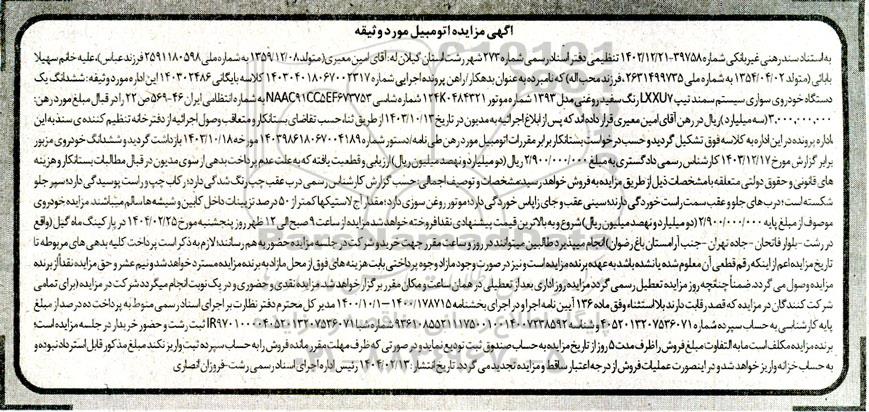 آگهی مزایده اتومبیل مورد وثیقه
به استناد سند رهنی غیربانکی شماره ۳۹۷۵۸-۱۴۰۲/۱۲/۲۱ تنظیمی دفتر اسناد رسمی شماره ۲۷۳ شهر رشت استان گیلان له: آقای امین معیری (متولد ۱۳۵۹/۱۲/۰۸ به شماره ملی ۲۵۹۱۱۸۰۵۹۸ فرزند عباس)، علیه خانم سهیلا
بابائی (متولد ۱۳۵۴/۰۴/۰۲ به شماره ملی ۲۶۳۱۴۹۹۷۳۵، فرزند محب اله) که نامبرده به عنوان بدهکار/ راهن پرونده اجرایی شماره ۱۴۰۳۰۴۰۱۸۰۶۷۰۰۲۳۱۷ کلاسه بایگانی ۱۴۰۳۰۲۴۸۶ این اداره مورد وثیقه: ششدانگ یک
دستگاه خودروی سواری سیستم سمند تیپ LXXU7 رنگ سفید روغنی مدل ۱۳۹۳ شماره موتور ۱۲۴K۰۴۸۴۳۲۱ شماره شاسی NAAC91CC5EF673753 به شماره انتظامی ایران ۴۶-۵۶۹ص۲۲ را در قبال مبلغ مهر دین:
۳,۰۰۰,۰۰۰,۰۰۰ (سه میلیارد) ریال در رهن آقای امین معیری قرار داده اند که پس از ابلاغ اجرائیه به مدیون در تاریخ ۱۴۰۳/۱۰/۱۳ از طریق ثنا، حسب تقاضای بستانکار و متعاقب وصول اجرائیه از دفترخانه تنظیم کننده ی سند به این
اداره پرونده در این اداره به کلاسه فوق تشکیل گردید و حسب درخواست بستانکار برابر مقررات اتومبیل مورد رهن طی نامه/دستور شماره ۱۴۰۳۹۸۶۱۸۰۶۷۰۰۴۱۸۹ مورخه ۱۴۰۳/۱۰/۱۸ بازداشت گردید و ششدانگ خودروی مزبور
برابر گزارش مورخ ۱۴۰۳/۱۲/۱۷ کارشناس رسمی دادگستری به مبلغ ۲/۹۰۰/۰۰۰/۰۰۰ ریال (دو میلیارد و نهصد میلیون ریال) ارزیابی و قطعیت یافته که به علت عدم پرداخت بدهی از سوی مدیون در قبال مطالبات بستانکار و هزینه
های قانونی و حقوق دولتی متعلقه با مشخصات ذیل از طریق مزایده به فروش خواهد رسید مشخصات و توصیف اجمالی: حسب گزارش کارشناس رسمی درب عقب چپ رنگ شدگی دارد؛ رکاب چپ و راست پوسیدگی دارد؛ سپر جلو
شکسته است؛ درب های جلو و عقب سمت راست خوردگی دارند؛ سینی عقب و جای زاپاس خوردگی دارد؛ موتور روغن سوزی دارد؛ مقدار آج لاستیکها کمتر از ۵۰ درصد تزیینات داخل کابین و شیشه ها سالم میباشند. مزایده خودروی
موصوف از مبلغ پایه ۲/۹۰۰/۰۰۰/۰۰۰ (دو میلیارد و نهصد میلیون ریال) شروع و به بالاترین قیمت پیشنهادی نقدا فروخته خواهد شد. مزایده از ساعت ۹ صبح الی ۱۲ ظهر روز پنجشنبه مورخ ۱۴۰۴/۰۲/۲۵ در پارکینگ ماه گیل (واقع
در رشت - بلوار فاتحان - جاده تهران - جنب آرامستان باغ رضوان) انجام میپذیرد طالبین میتوانند در روز و ساعت مقرر جهت خرید و شرکت در جلسه مزایده حضور به هم رسانند؛ لازم به ذکر است پرداخت کلیه بدهی های مربوطه تا
تاریخ مزایده اعم از اینکه رقم قطعی آن معلوم شده یا نشده باشد به عهده برنده مزایده است و نیز در صورت وجود مازاد وجوه پرداختی بابت هزینه های فوق از محل مازاد به برنده مزایده مسترد خواهد شد و نیم عشر و حق مزایده نقدا از برنده
مزایده وصول می گردد ضمنا چنانچه روز مزایده تعطیل رسمی گردد مزایده روز اداری بعد از تعطیلی در همان ساعت و مکان مقرر برگزار خواهد شد. مزایده نقدی و حضوری و در یک نوبت انجام میگردد شرکت در مزایده (برای تمامی
شرکت کنندگان در مزایده که قصد رقابت دارند بلااستثناء) وفق ماده ۱۳۶ آیین نامه اجرا و در اجرای بخشنامه ۱۴۰۰/۱۷۸۷۱۵-۱۴۰۰/۱۰/۰۱ مدیر کل محترم دفتر نظارت بر اجرای اسناد رسمی منوط به پرداخت ده درصد از مبلغ
پایه کارشناسی به حساب سپرده شماره ۴۰۵۲۰۱۳۲۰۷۵۳۶۰۷۱ و شناسه
ثبت رشت و حضور خریدار در جلسه مزایده است؛
برنده مزایده مکلف است مابه التفاوت مبلغ فروش را ظرف مدت ۵ روز از تاریخ مزایده به حساب صندوق ثبت تودیع نماید و در صورتی که ظرف مهلت مقرر مانده فروش را به حساب سپرده ثبت واریز نکند مبلغ مذکور قابل استرداد نبوده و
به حساب خزانه واریز خواهد شد و در اینصورت عملیات فروش از درجه اعتبار ساقط و مزایده تجدید می گردد. تاریخ انتشار: ۱۴۰۴/۰۲/۱۳ رئیس اداره اجرای اسناد رسمی رشت - فروزان انصاری